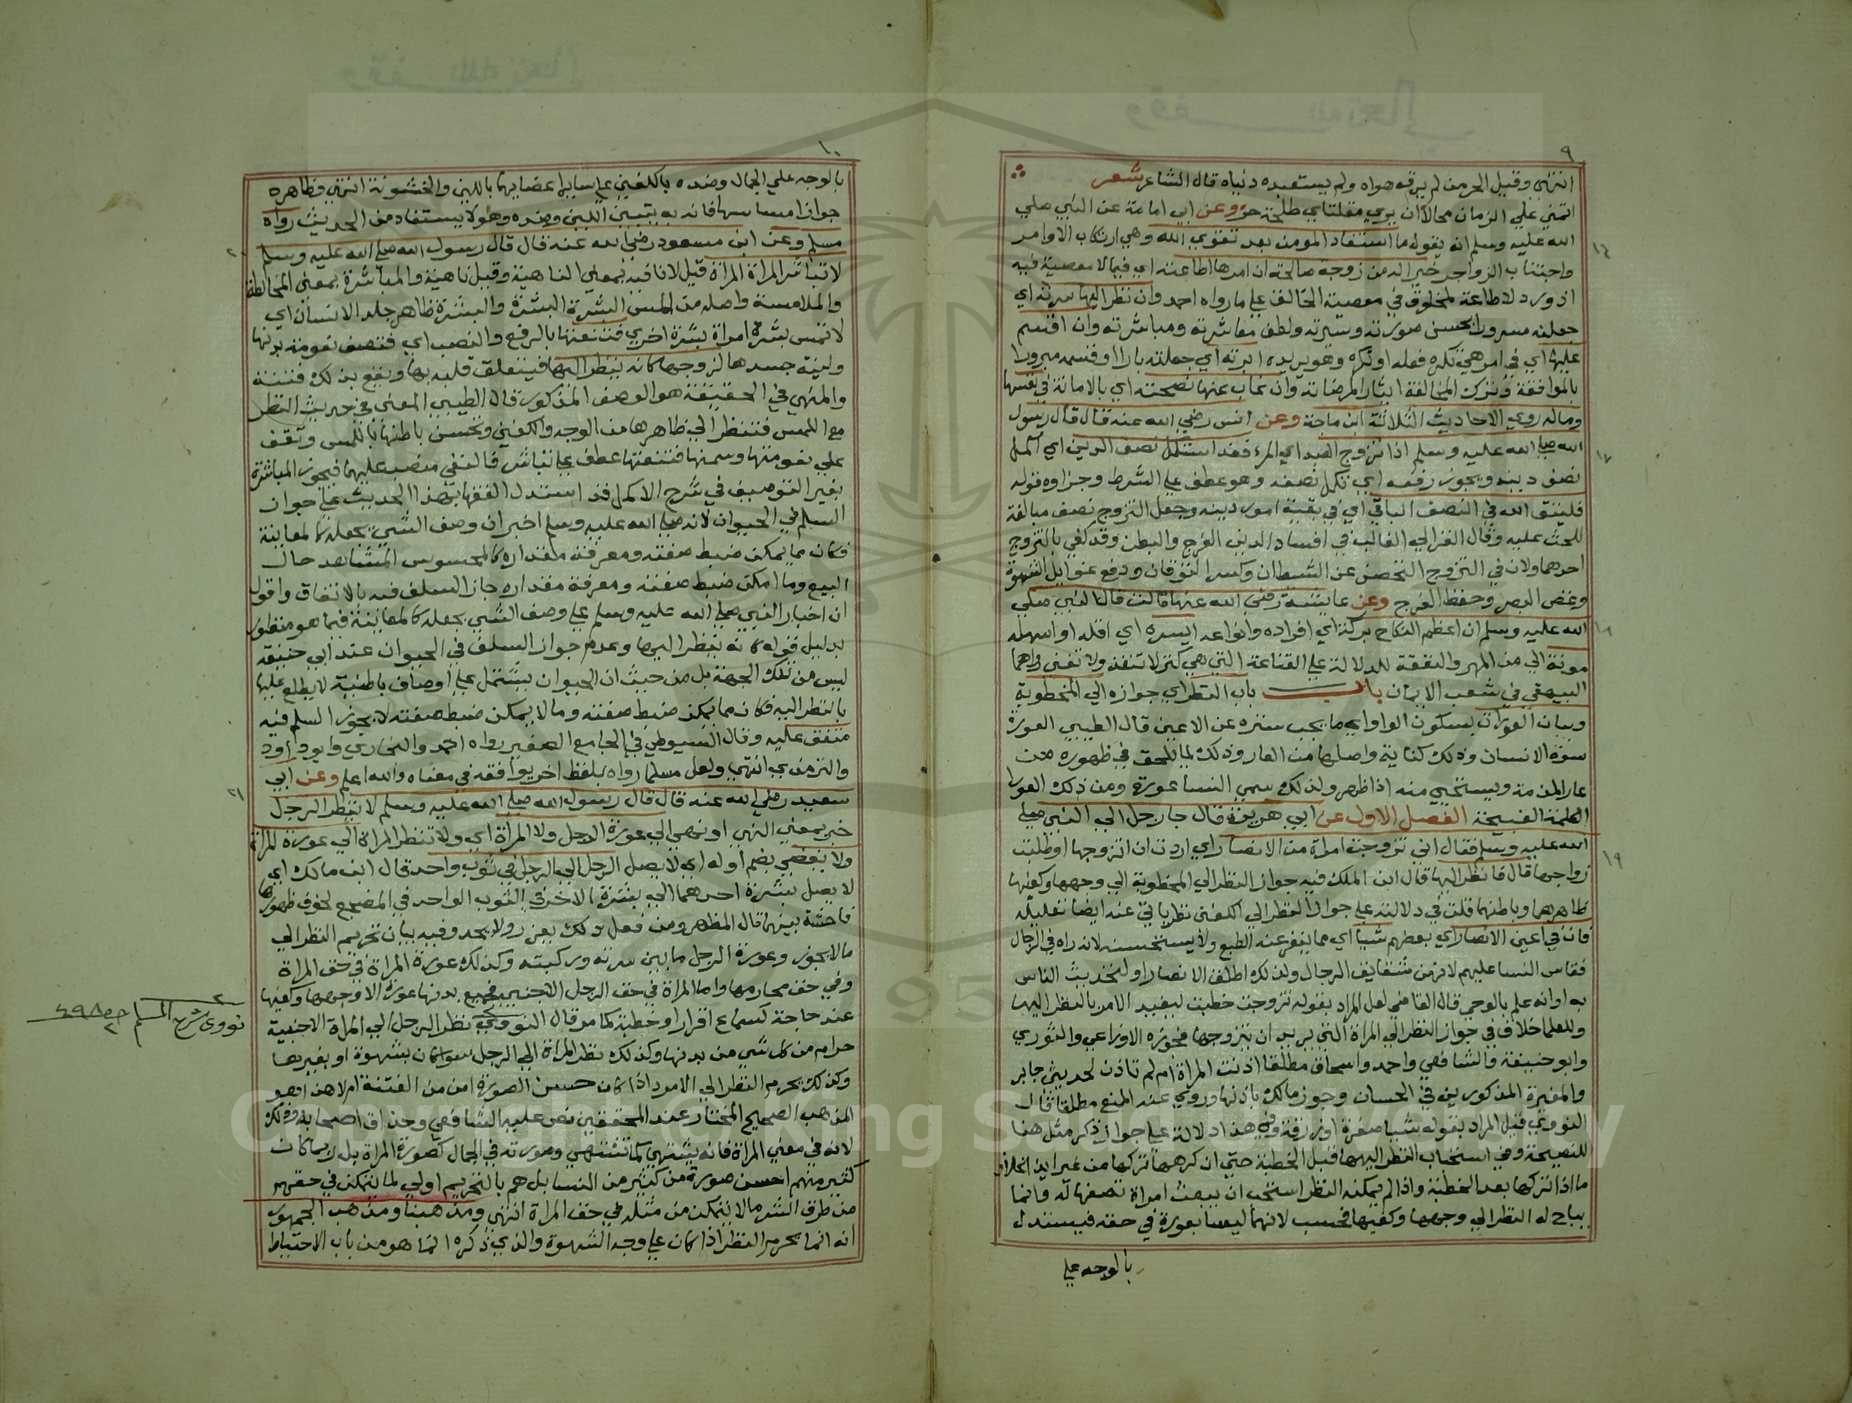 وقف لله تعالى
٩
انتهى وقيل الحر من لم يرقه هواه ولم يستعبده دنياه قال الشاعر شعر
اتمنى علي الزمان محالا ان يري مقلتاي طلعة حر وعن ابي امامة عن النبي صلي
الله عليه وسلم انه يقول ما استفاد المومن بعد تقوي الله وهي ارتكاب الاوامر
واجتناب الزواجر خيرا له من زوجة صالحة ان امرها اطاعته اي فيما لا معصية فيه
اذ ورد لا طاعة لمخلوق في معصية الخالق علي ما رواه احمد وان نظر اليها سرته اي
جعلته مسرورا بحسن صورته وسيرته ولطف معاشرته ومباشرته وان اقسم
عليها اي في امر هي تكره فعله او تركه وهو يريده ابرته اي جعلته بارا او قسمه مبرورا
بالموافقة وترك المخالفة ايثارا لمرضاته وان غاب عنها نصحته اي بالامانة في نفسها
وماله روي الاحاديث الثلاثة ابن ماجة وعن انس رضي الله عنه قال قال رسول
الله صلي الله عليه وسلم اذا تزوج العبد اي المرء فقد استكمل نصف الدين اي اكمل
نصف دينه ويجوز رفعه اي تكمل نصفه وهو عطف علي الشرط وجزاوه قوله
فليتق الله في النصف الباقي اي في بقية امور دينه وجعل التزوج نصف مبالغة
للحث عليه وقال الغزالي الغالب في افساد الدين الفرج والبطن وقد كفي بالتزوج
احدهما ولان في التزوج التحصن عن الشيطان وكسر التوقان ودفع غوايل الشهوة
وغض البصر وحفظ الفرج وعن عايشة رضي الله عنها قالت قال النبي صلي
الله عليه وسلم ان اعظم النكاح بركة اي افراده وانواعه ايسره اي اقله او اسهله
مونة الي من المهر والنفقة للدلالة علي القناعة التي هي كنز لا تنفد ولا تفني رواهما
البيهقي في شعب الايمان باب باب النظر اي جوازه الي المخطوبة
وبيان العورات بسكون الواو اي ما يجب ستره عن الاعين قال الطيبي العورة
سوة الانسان وذلك كناية واصلها من العار وذلك لما يلحق في ظهوره من
عار المذمة ويستحيي منه اذا ظهر ولذلك سمي النسا عورة ومن ذلك العورا
الكلمة القبيحة الفصل الاول عن ابي هريرة قال جا رجل الي النبي صلي
الله عليه وسلم فقال اني تزوجت امراة من الانصار اي اردت ان اتزوجها او طلبت
زواجها قال فانظر اليها قال ابن الملك فيه جواز النظر الي المخطوبة الي وجهها وكفيها
ظاهرهما وباطنهما قلت في دلالته علي جواز النظر الي الكفين نظر ياتي عنه ايضا تعليله
فان في اعين الانصار اي بعضهم شيا اي مما ينفر عنه الطبع ولا يستحسنه لانه راه في الرجال
فقاس النسا عليهم لانهن شقايق الرجال ولذلك اطلق الانصار او لتحدث الناس
به او انه علم بالوحي قال القاضي لعل المراد بقوله تزوجت خطبت ليفيد الامر بالنظر اليها
وللعلما خلاف في جواز النظر الي المراة التي يريد ان يتزوجها فجوزه الاوزاعي والثوري
وابو حنيفة والشافعي واحمد واسحاق مطلقا اذنت المراة ام لم تاذن لحديث جابر
والمغيرة المذكورين في الحسان وجوز مالك باذنها وروي عنه المنع مطلقا قال
النووي قيل المراد بقوله شيا صغرة او زرقة وفي هذا دلالة علي جواز ذكر مثل هذا
للنصيحة وفي استحباب النظر اليها قبل الخطبة حتي ان كرهها تركها من غير ايذا بخلاف
ما اذا تركها بعد الخطبة واذا لم يمكنه النظر استحب ان يبعث امراة تصفها له وانما
يباح له النظر الي وجهها وكفيها فحسب لانهما ليسا بعورة في حقه فيستدل
بالوجه علي
١٦
١٧
١٨
١٩
وقف لله تعالى
١٠
بالوجه علي الجمال وضده بالكفين علي ساير اعضايها باللين والخشونة انتهي وظاهره
جواز مساسها فانه به يتبين اللين وضده وهو لا يستفاد من الحديث رواه
مسلم وعن ابن مسعود رضي الله عنه قال قال رسول الله صلي الله عليه وسلم
لا تباشر المراة المراة قيل لا نافية بمعني الناهية وقيل ناهية والمباشرة بمعني المخالطة
والملامسة واصله من لمس البشرة البشرة والبشرة ظاهر جلد الانسان اي
لا تمس بشرة امراة بشرة اخري فتنعتها بالرفع والنصب اي فتصف نعومة بدنها
ولينة جسدها لزوجها كانه ينظر اليها فيتعلق قلبه بها ويقع بذلك فتنة
والمنهي في الحقيقة هو الوصف المذكور قال الطيبي المعني في حديث النظر
مع اللمس فتنظر الي ظاهرها من الوجه والكفين وتحسن باطنها باللمس وتقف
علي نعومتها وسمنها فتنعتها عطف علي تباشر فالنفي منصب عليهما فيجوز المباشرة
بغير التوصيف في شرح الاكمل قد استدل الفقها بهذا الحديث علي جواز
السلم في الحيوان لانه صلي الله عليه وسلم اخبر ان وصف الشي يجعله كالمعاينة
فكان مما يمكن ضبط صفته ومعرفة مقداره كالمحسوس المشاهد حال
البيع وما امكن ضبط صفته ومعرفة مقداره جاز السلف فيه بالاتفاق واقول
ان اخبار النبي صلي الله عليه وسلم علي وصف الشي يجعله كالمعاينة فيما هو منظور
بدليل قوله كانه ينظر اليها وعدم جواز السلف في الحيوان عند ابي حنيفة
ليس من تلك الجهة بل من حيث ان الحيوان يشتمل علي اوصاف باطنية لا يطلع عليها
بالنظر اليه فكان مما يمكن ضبط صفته وما لا يمكن ضبط صفته لا يجوز السلم فيه
متفق عليه وقال السيوطي في الجامع الصغير رواه احمد والبخاري وابو داود
والترمذي انتهي ولعل مسلما رواه بلفظ اخر يوافقه في معناه والله اعلم وعن ابي
سعيد رضي الله عنه قال قال رسول الله صلي الله عليه وسلم لا ينظر الرجل
خبر بمعني النهي او نهي الي عورة الرجل ولا المراة اي ولا تنظر المراة الي عورة المراة
ولا يفضي بضم اوله اي لا يصل الرجل الي الرجل في ثوب واحد قال ابن مالك اي
لا يصل بشرة احدهما الي بشرة الاخر في الثوب الواحد في المضجع لخوف ظهور
فاحشة بينهما قال المظهر ومن فعل ذلك يعزر ولا يحد وفيه بيان تحريم النظر الي
ما لا يجوز وعورة الرجل ما بين سرته وركبته وكذلك عورة المراة في حق المراة
وفي حق محارمها واما المراة في حق الرجل الاجنبي فجميع بدنها عورة الا وجهها وكفيها
عند حاجة كسماع اقرار او خطبة كما مر قال النووي نظر الرجل الي المراة الاجنبية
حرام من كل شي من بدنها وكذلك نظر المراة الي الرجل سوا كان بشهوة او بغيرها
وكذلك يحرم النظر الي الامرد اذا كان حسن الصورة امن من الفتنة ام لا هذا هو
المذهب الصحيح المختار عند المحققين نص عليه الشافعي وحذاق اصحابه وذلك
لانه في معني المراة فانه يشتهي كما تشتهي وصورته في الجمال كصورة المراة بل ربما كان
كثير منهم احسن صورة من كثير من النسا بل هم بالتحريم اولي لما يتمكن في حقهم
من طرق الشر ما لا يتمكن من مثله في حق المراة انتهي ومذهبنا ومذهب الجمهور
انه انما يحرم النظر اذا كان علي وجه الشهوة والذي ذكره انما هو من باب الاحتياط
٢٠
٢١
نووي شرح المسلم
Copyright © King Saud University
1957